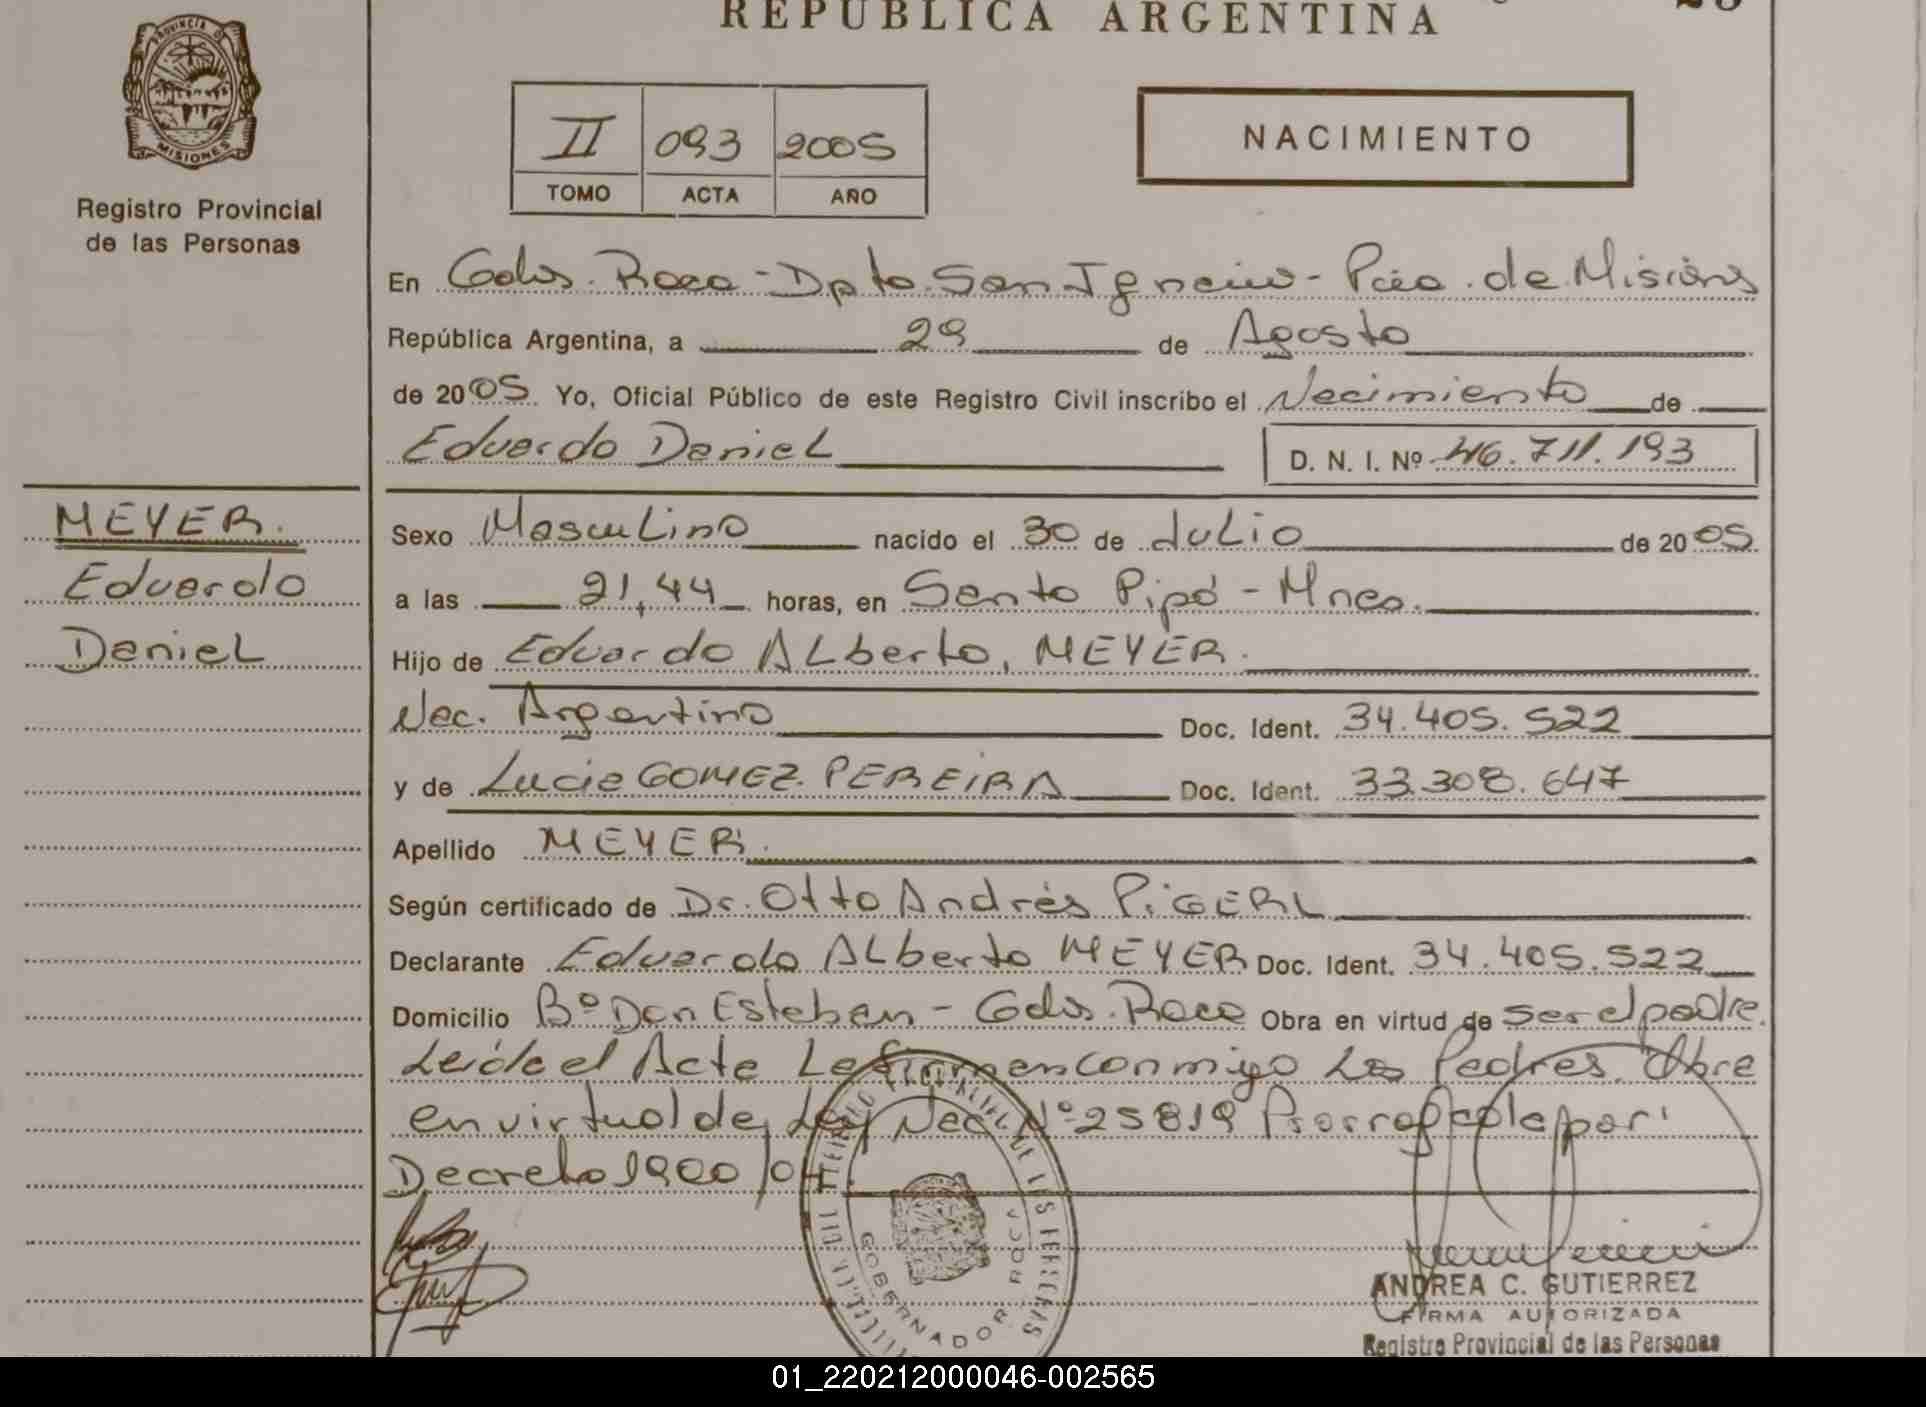 REPUBLICA ARGENTINA
PROVINCIA D
MISIONES
Registro Provincial
de las Personas
II 093 2005
TOMO ACTA AÑO
NACIMIENTO
En Gdor. Roca - Dpto. San Ignacio - Pcia. de Misiones
República Argentina, a 29 de Agosto
de 2005. Yo, Oficial Público de este Registro Civil inscribo el Nacimiento de
Eduardo Daniel
D. N. I. Nº 46.711.193
MEYER.
Eduardo
Daniel
Sexo Masculino nacido el 30 de Julio de 2005
a las 21,44 horas, en Santo Pipó - Mnes.
Hijo de Eduardo Alberto, MEYER.
Nac. Argentino Doc. Ident. 34.405.522
y de Lucia GOMEZ PEREIRA Doc. Ident. 33.308.647
Apellido MEYER.
Según certificado de Dr. Otto Andrés PIGERL
Declarante Eduardo Alberto MEYER Doc. Ident. 34.405.522
Domicilio Bº Don Esteban - Gdor. Roca Obra en virtud de ser el padre.
Leída el Acta La firman conmigo Los Padres. Obra
en virtud de Ley Nac. Nº 25819 Prorrogada por
Decreto 1900/04.
GOBERNADOR ROCA
ANDREA C. GUTIERREZ
FIRMA AUTORIZADA
Registro Provincial de las Personas
01_220212000046-002565